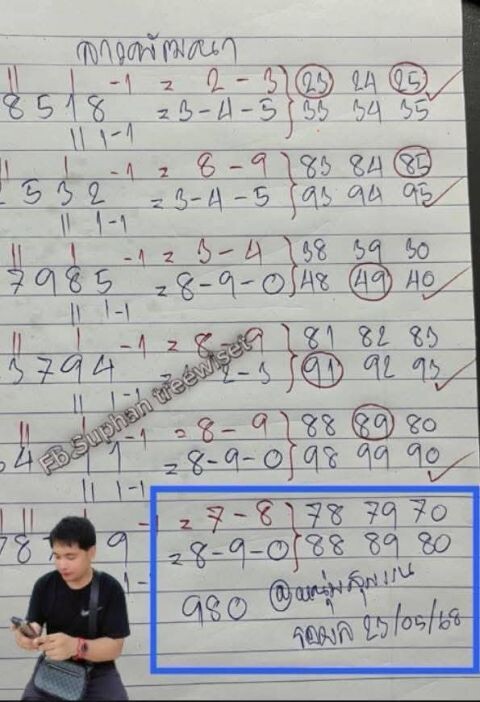 ลาวพัฒนา
|| | -1 = 2 - 3 } 23 24 25
8518 = 3-4-5 } 33 34 35
|| 1-1
| -1 = 8 - 9 } 83 84 85
2532 = 3-4-5 } 93 94 95
|| 1-1
|| | -1 = 3 - 4 } 38 39 30
7985 = 8-9-0 } 48 49 40
|| 1-1
|| | -1 = 8 - 9 } 81 82 83
3794 2-3 } 91 92 93
|| 1-1
|| | -1 = 8 - 9 } 88 89 80
54 11 = 8-9-0 } 98 99 90
|| 1-1
|| -1 = 7 - 8 } 78 79 70
9 = 8-9-0 } 88 89 80
980 @หนุ่มสุพรรณ
23/05/68
Fb.Suphan treewiset